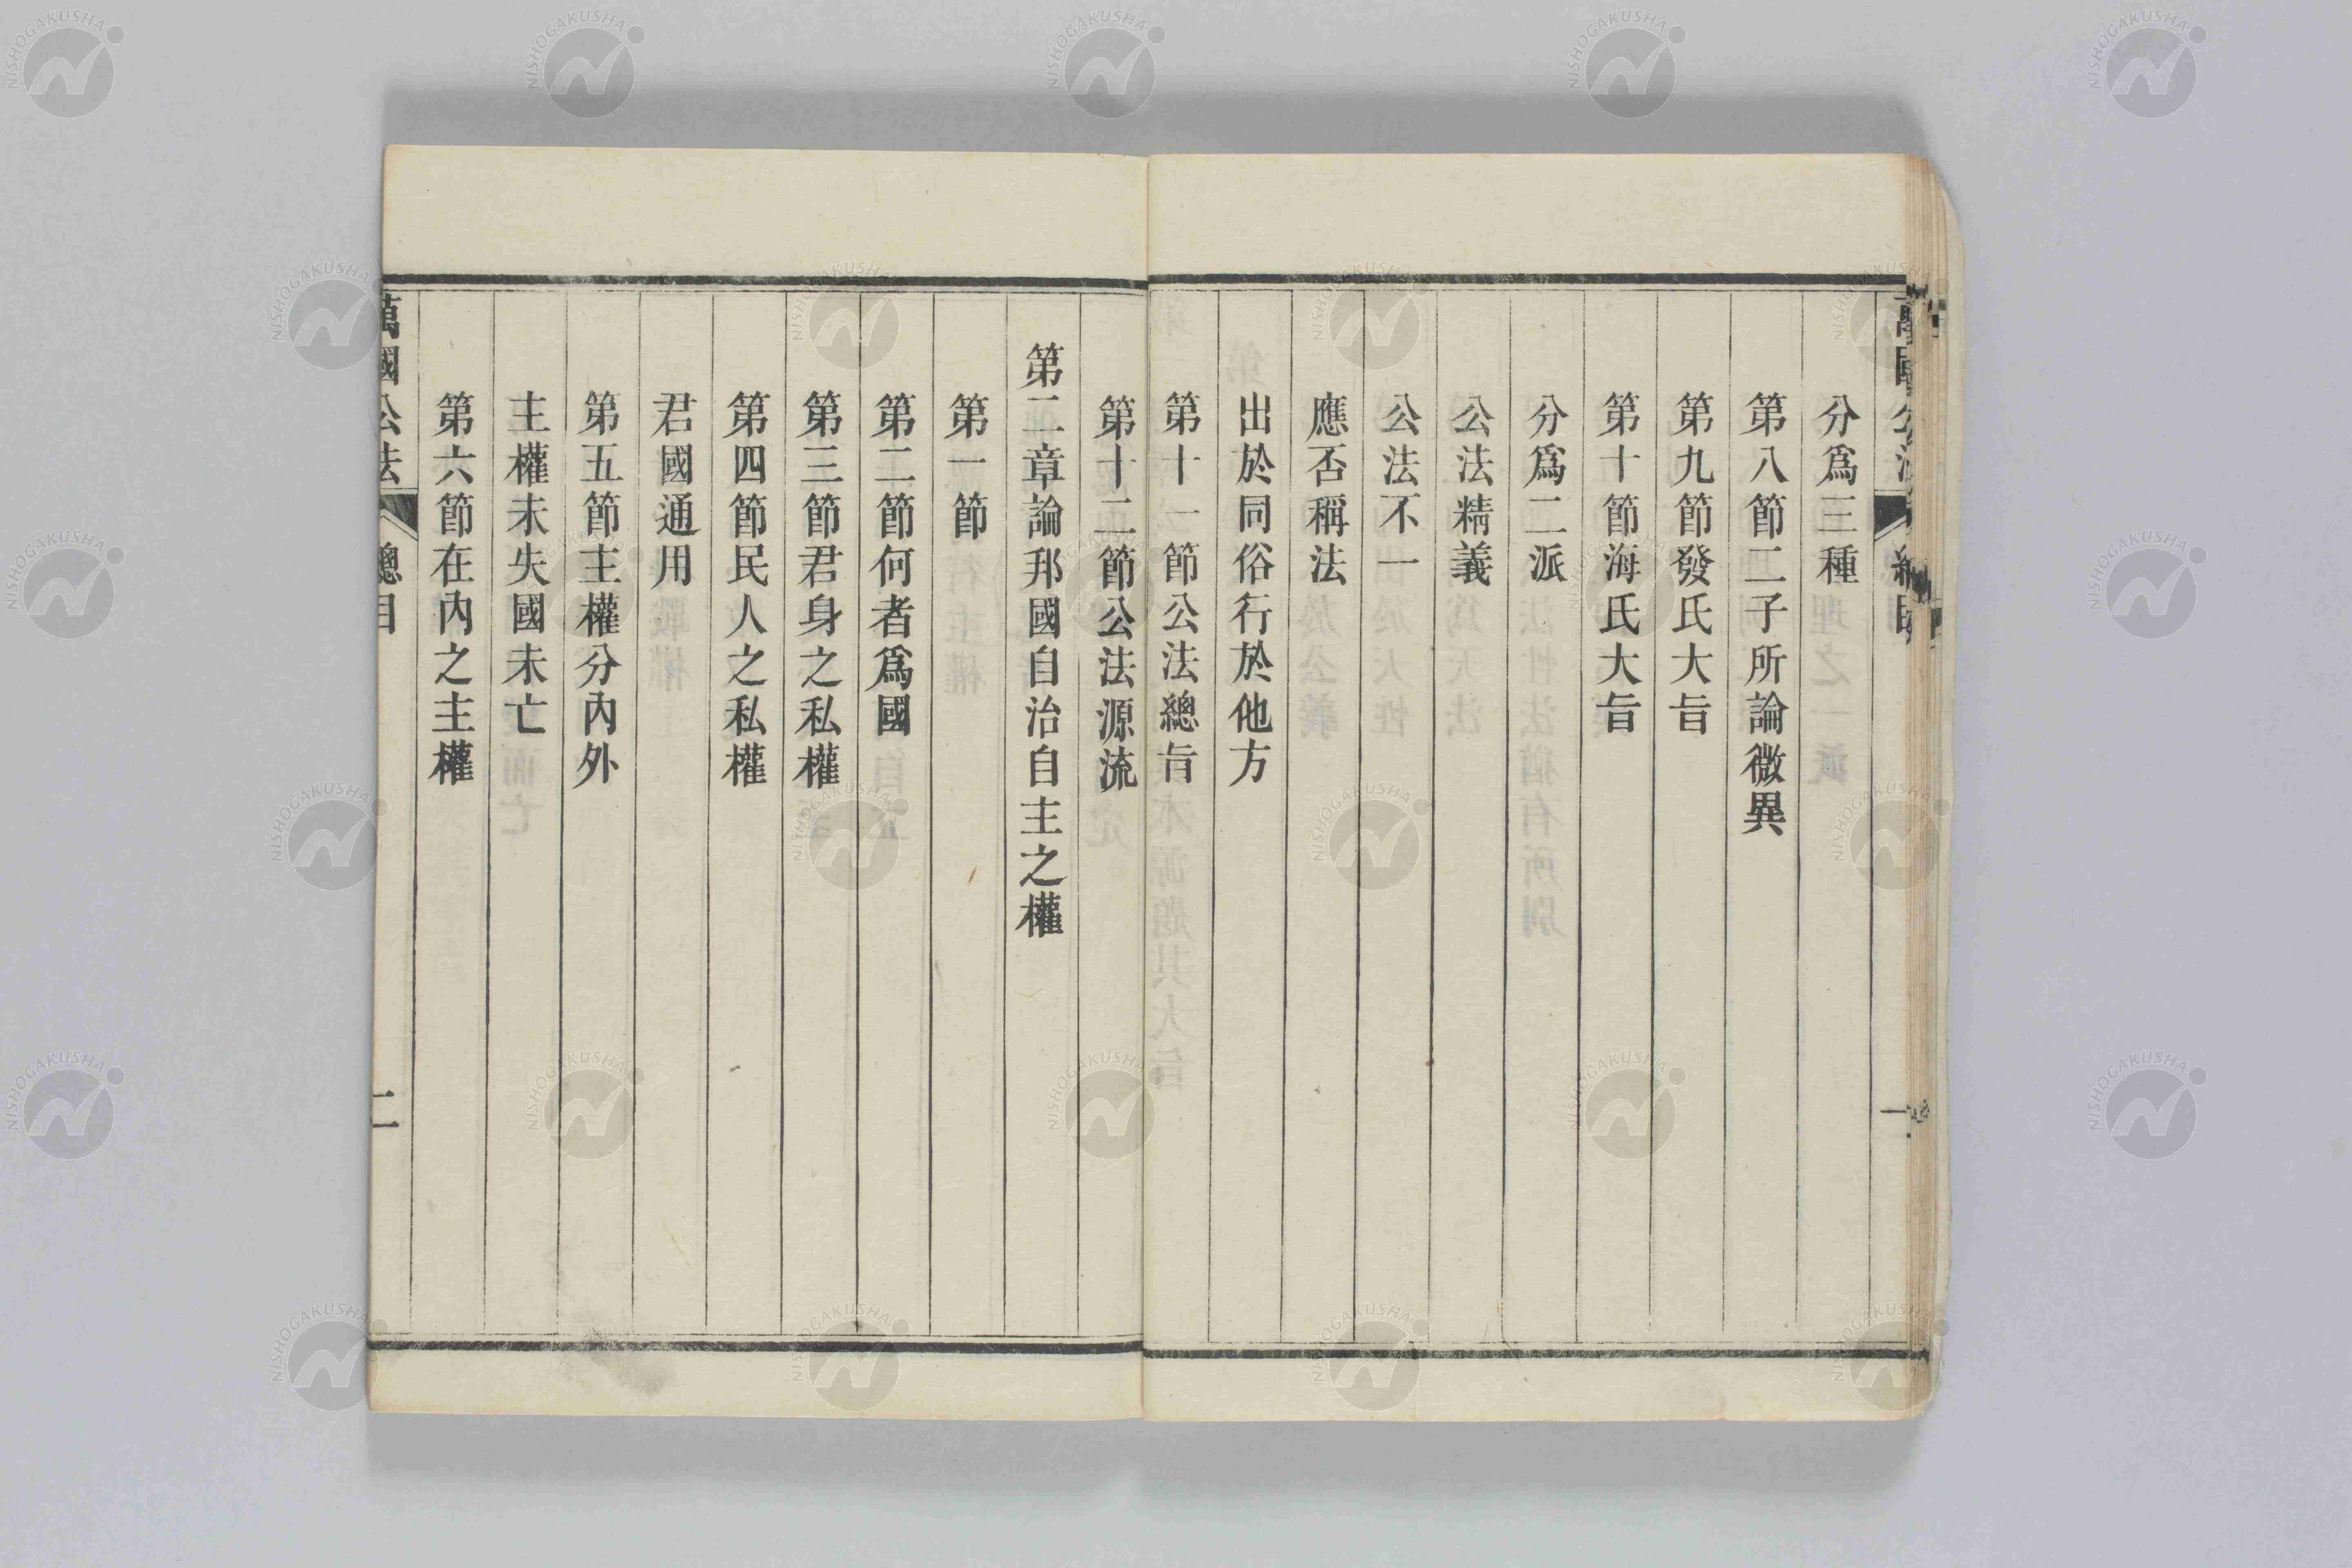 分爲三種
第八節二子所論微異
第九節發氏大旨
第十節海氏大旨
分爲二派
公法精義
公法不一
應否稱法
出於同俗行於他方
第十一節公法總旨
第十二節公法源流
第二章論邦國自治自主之權
第一節
第二節何者爲國
第三節君身之私權
第四節民人之私權
君國通用
第五節主權分內外
主權未失國未亡
第六節在內之主權
萬國公法 總目 二
NISHOGAKUSHA